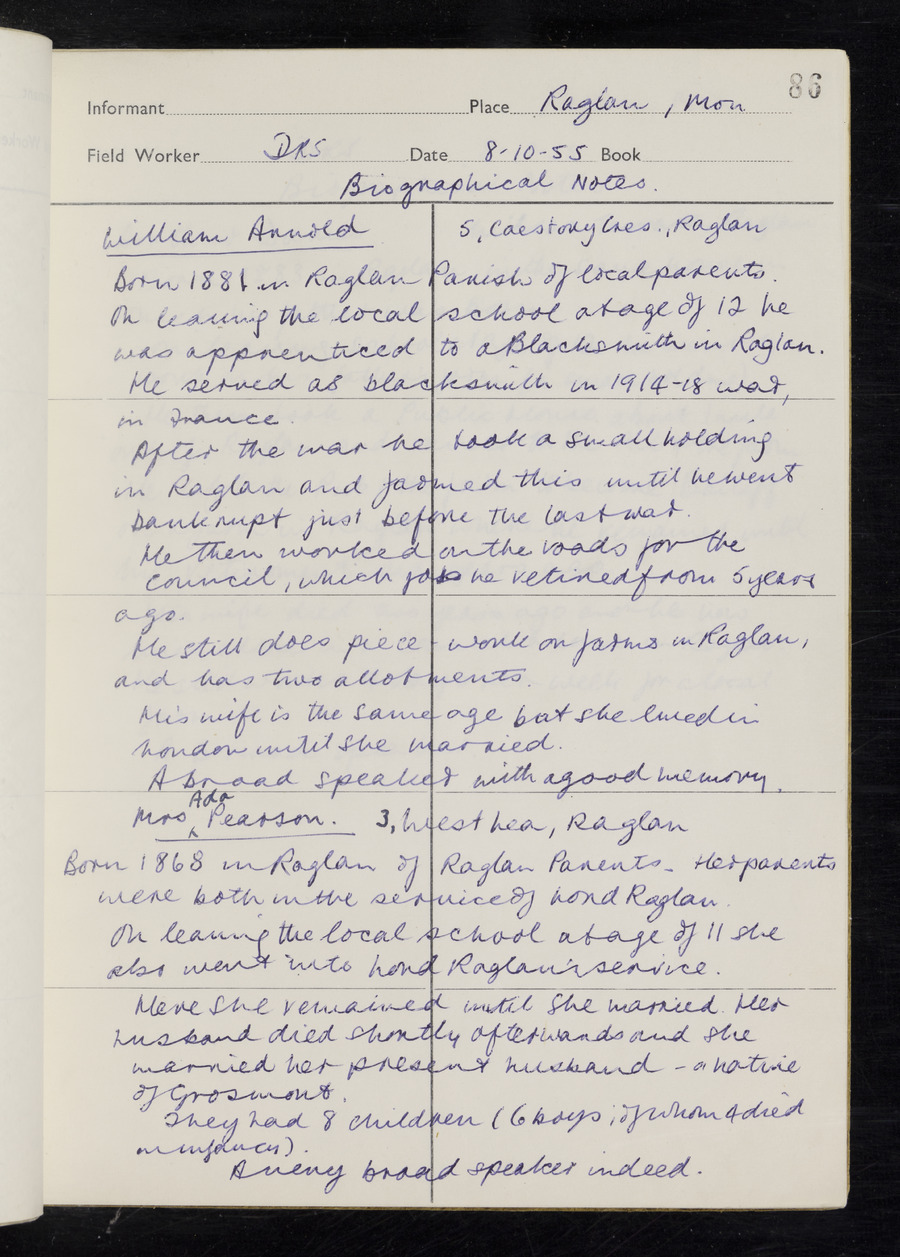 86
Informant Place Raglan, Mon
Field Worker DRS Date 8-10-55 Book
Biographical Notes.
William Arnold 5, Caestory Cres., Raglan
Born 1881 in Raglan Parish of local parents.
On leaving the local school at age of 12 he
was apprenticed to a Blacksmith in Raglan.
He served as blacksmith in 1914-18 war,
in France.
After the war he took a small holding
in Raglan and farmed this until he went
bankrupt just before the last war.
He then worked on the roads for the
council, which job he retired from 5 years
ago.
He still does piece-work on farms in Raglan,
and has two allotments.
His wife is the same age but she lived in
London until she married.
A broad speaker with a good memory.
Mrs Ada Pearson. 3, West Lea, Raglan
Born 1868 in Raglan of Raglan Parents - Her parents
were both in the service of Lord Raglan.
On leaving the local school at age of 11 she
also went into Lord Raglan's service.
Here she remained until she married. Her
husband died shortly afterwards and she
married her present husband - a native
of Grosmont.
They had 8 children (6 boys, of whom 4 died
in infancy).
A very broad speaker indeed.